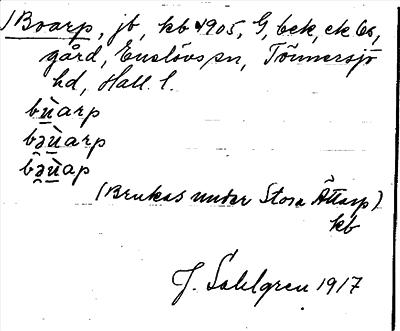 1 Boarp, jb, kb 1905, G, bek, ek 60,
gård, Enslövs sn, Tönnersjö
hd, Hall. l.
bù̱arp
bəù̱arp
bəù̱ap
(Brukas under Stora Ättarp)
kb
J. Sahlgren 1917